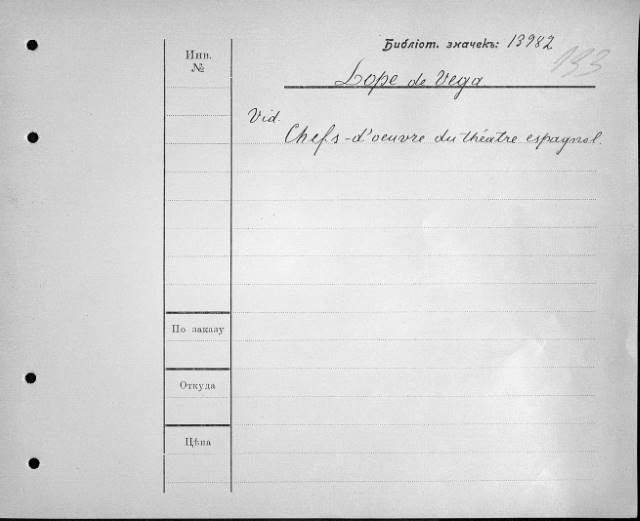 Библіот. значекъ: 13982
133
Инв. №
Lope de Vega
Vid.
Chefs-d'oeuvre du théatre espagnol.
По заказу
Откуда
Цѣна